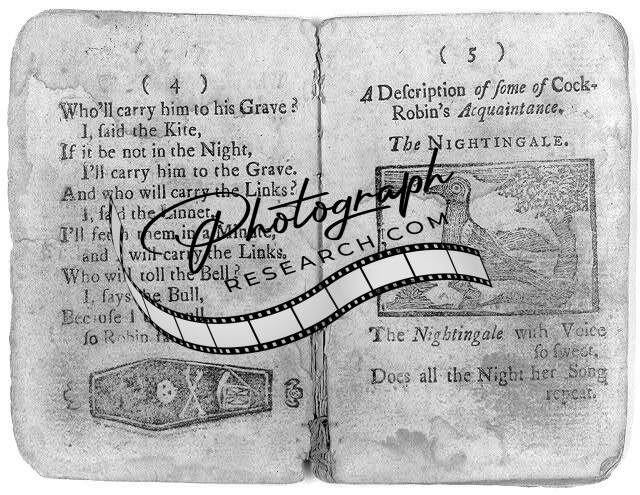 ( 4 )
Who'll carry him to his Grave?
I, ſaid the Kite,
If it be not in the Night,
I'll carry him to the Grave.
And who will carry the Links?
I, ſaid the Linnet,
I'll fetch them in a Minute,
and I will carry the Links.
Who will toll the Bell?
I, ſays the Bull,
Becauſe I
ſo Robin
( 5 )
A Deſcription of ſome of Cock-
Robin's Acquaintance.
The NIGHTINGALE.
The Nightingale with Voice
ſo ſweet,
Does all the Night her Song
repeat.
Photograph
RESEARCH.COM